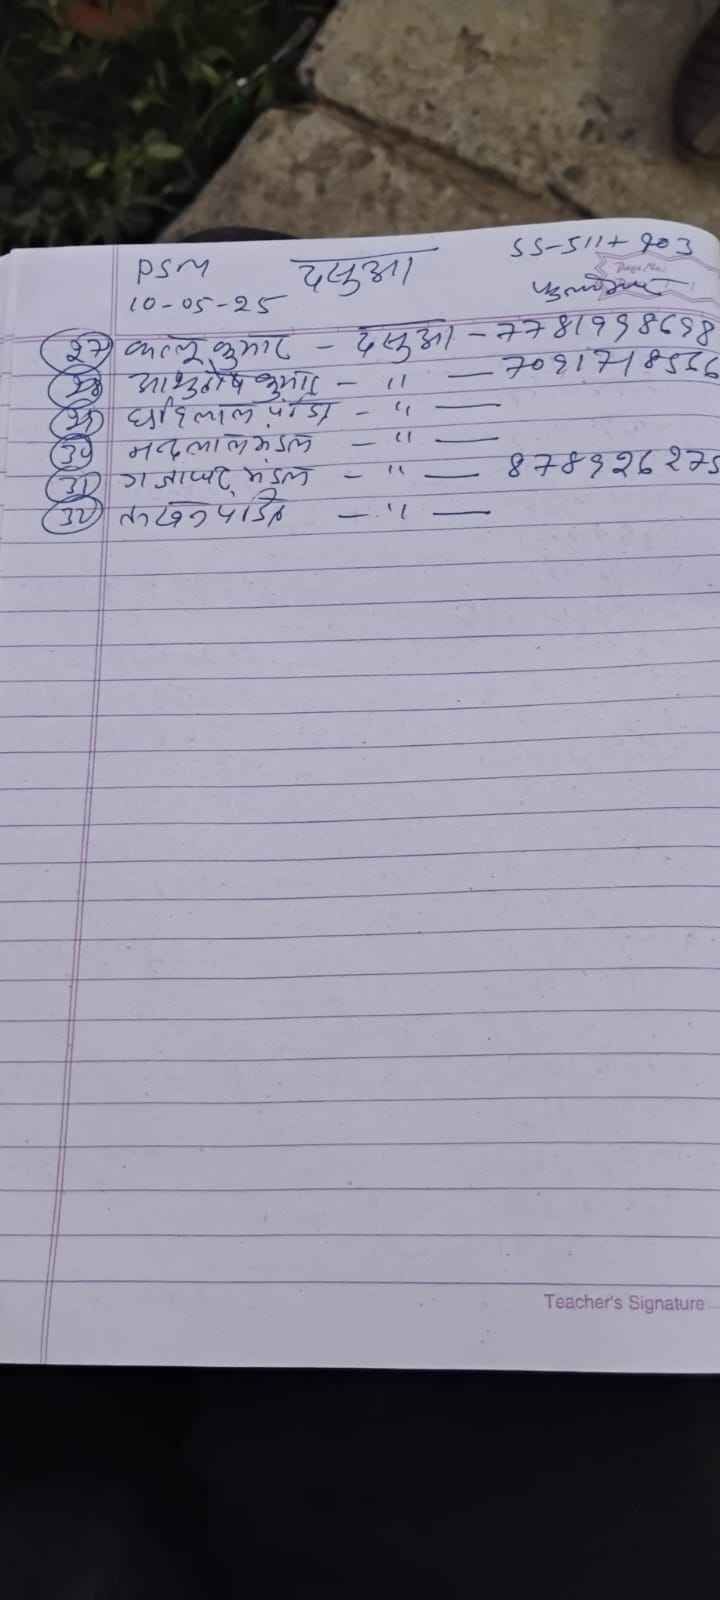 PSM दसुआ SS-511+903
10-05-25
27 कालू कुमार - दसुआ - 7781998698
28 आशुतोष कुमार - " - 7091718556
29 लाल पंडित - " -
30 नन्दलाल मंडल - " -
31 गजाधर मंडल - " - 878926275
32 लखन पंडित - " -
Teacher's Signature